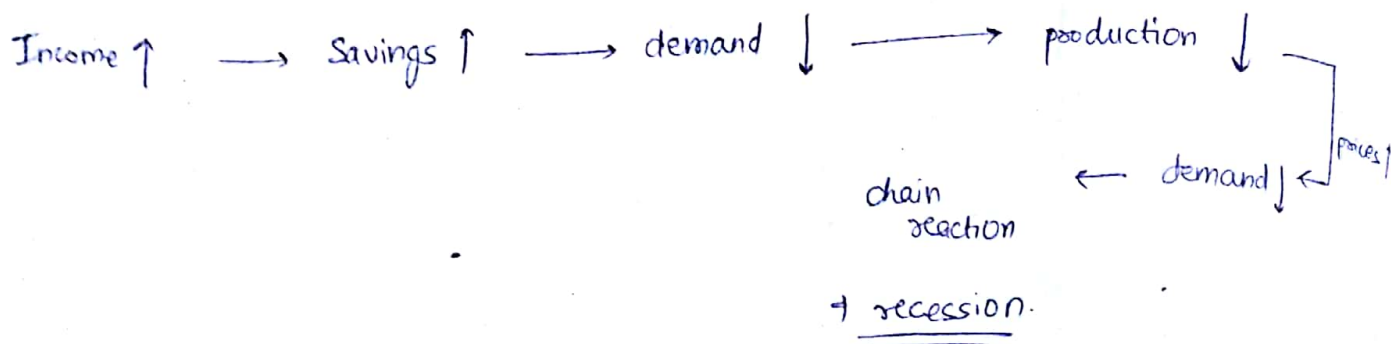 Income ↑ → Savings ↑ → demand ↓ → production ↓
prices↑
demand↓ ←
chain
reaction
& recession.